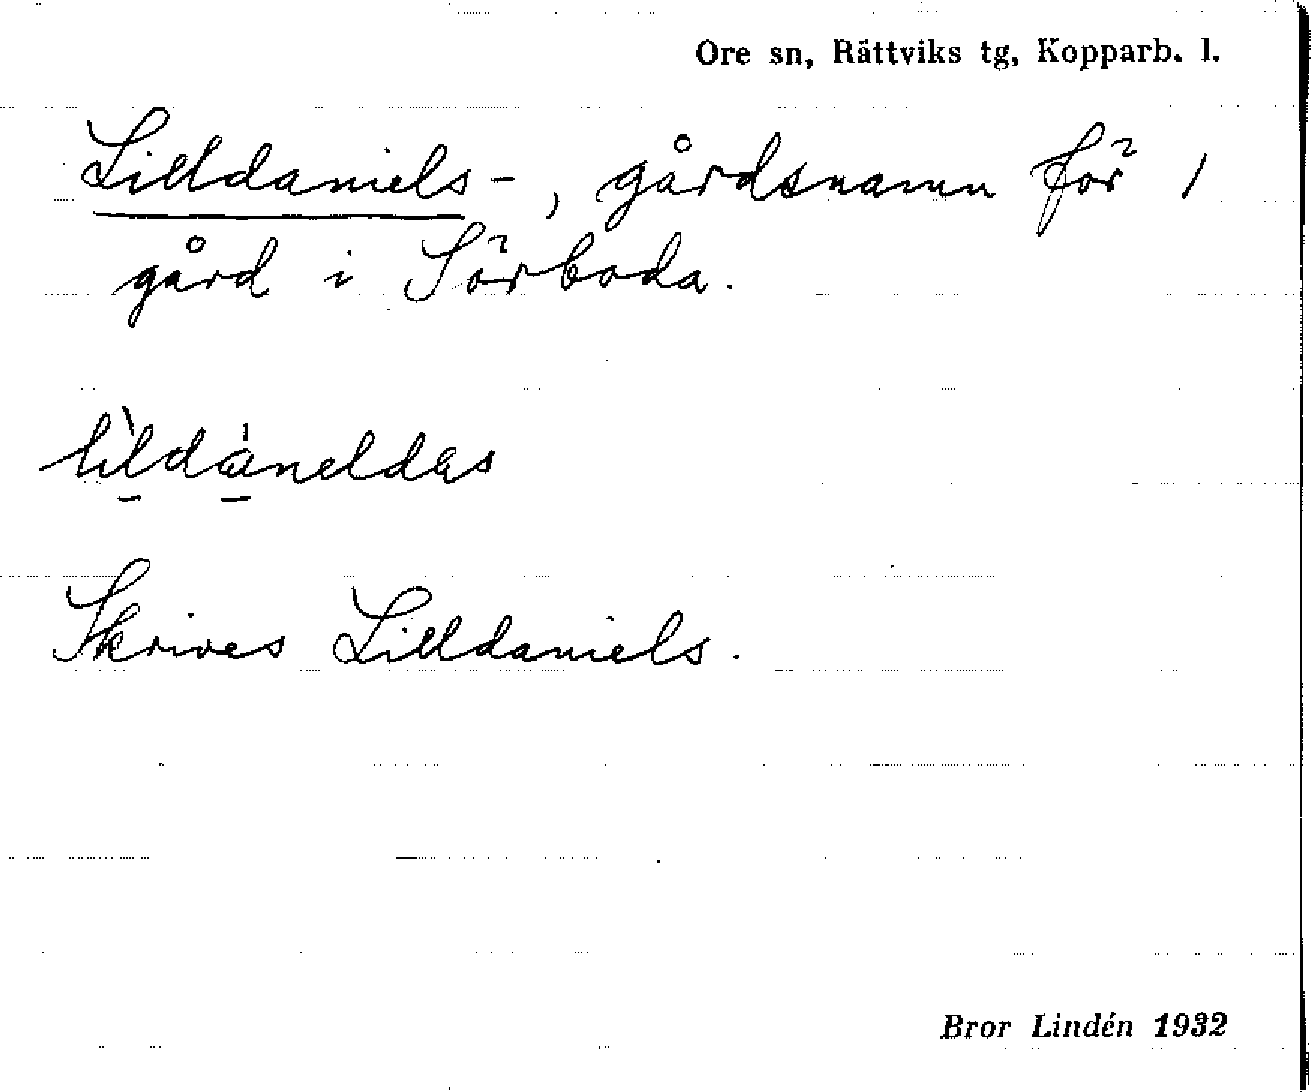 Ore sn, Rättviks tg, Kopparb. l.
Lilldaniels-, gårdsnamn för 1
gård i Sörboda.
lìldáneldas
Skrives Lilldaniels.
Bror Lindén 1932